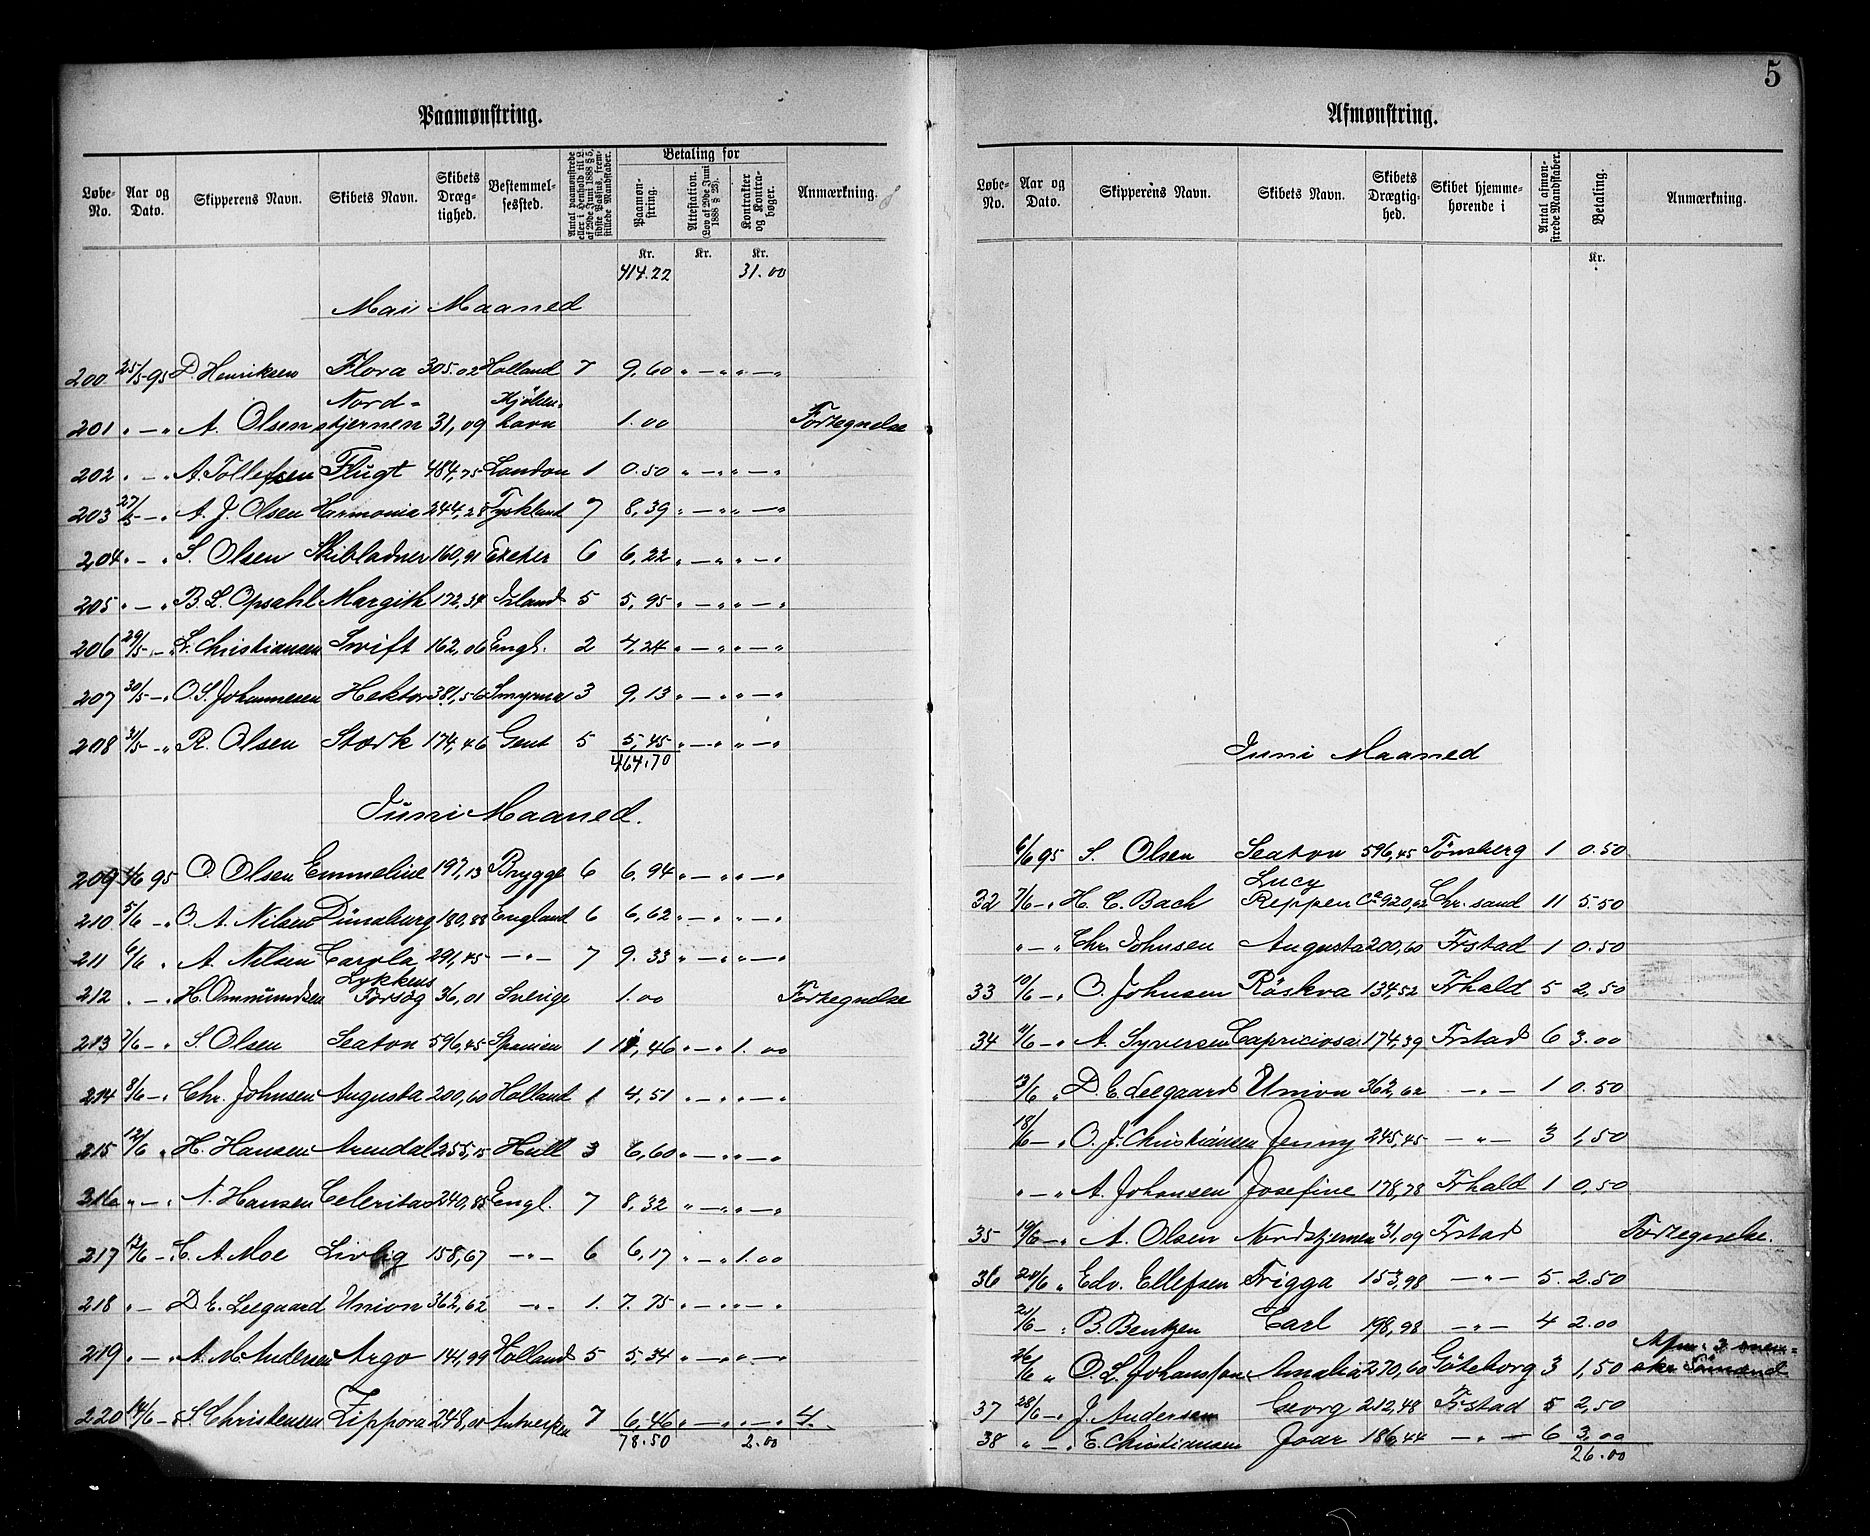 5
Paamønstring.
Løbe-No. | Aar og Dato. | Skipperens Navn. | Skibets Navn. | Skibets Dræg-tighed. | Bestemmel-sessted. | Antal paamønstrede eller i Henhold til L. af 29de Juni 1888 § 5, sidste Passus, frem-stillede Mandskaber. | Betaling for | Paamøn-string. | Attestation. (Lov af 29de Juni 1888 § 28). | Kontrakter og Kontra-bøger. | Anmærkning.
Kr. | Kr. | Kr.
414.22 | 31.00
Mai Maaned
200 25/5 95 D. Henriksen Flora 305.02 Holland 7 9,60 „ — „ „ — „
201 „ — „ A. Olsen Nord-stjernen 31,09 Kjøben-havn 1.00 Fortegnelse
202 „ — „ A. Tollefsen Flugt 484,75 London 1 0.50 „ — „ „ — „
203 27/5 — „ A. J. Olsen Harmonia 244,28 Tyskland 7 8,39 „ — „ „ — „
204 „ — „ S. Olsen Skibladner 160,91 Exeter 6 6,22 „ — „ „ — „
205 „ — „ B. L. Opsahl Margith 172,34 Island 5 5,95 „ — „ „ — „
206 29/5 — „ L. Christiansen Swift 162,06 Engl. 2 4,24 „ — „ „ — „
207 30/5 — „ O. S. Johannesen Hektor 381,56 Smyrna 3 9,13 „ — „ „ — „
208 31/5 — „ R. Olsen Stærk 174,46 Gent 5 5,45 „ — „ „ — „
464.70
Juni Maaned.
209 4/6 95 O. Olsen Emmeline 197,13 Brygge 6 6,94 „ — „ „ — „
210 5/6 — „ O. A. Nilsen Dünaburg 180,88 England 6 6,62 „ — „ „ — „
211 6/6 „ A. Nilsen Carola 291,45 — „ — 7 9.33 „ — „ „ — „
212 „ — „ H. Ommundsen Lykkens Forsøg 36,01 Sverige 1.00 Fortegnelse
213 7/6 — „ S. Olsen Seaton 596,45 Spanien 1 11,46 „ — „ 1.00
214 8/6 — „ Chr. Johnsen Augusta 200,60 Holland 1 4,51 „ — „ „ — „
215 12/6 „ H. Hansen Arendal 255,15 Hull 3 6,60 „ — „ „ — „
216 „ — „ N. Hansen Celeritas 240,85 Engl. 7 8,32 „ — „ „ — „
217 13/6 — „ C. A. Moe Livlig 158,67 — „ — 6 6,17 „ — „ 1.00
218 „ — D. E. Leegaard Union 362,62 — „ — 1. 7.75 „ — „ „ — „
219 „ — „ A. M. Andersen Argo 141,99 Holland 5 5,34 „ — „ „ — „
220 14/6 — „ S. Christensen Zippora 248,00 Antwerpen 7 6,46 „ — „ „ — „ 4.
78.50 | 2.00
Afmønstring.
Løbe-No. | Aar og Dato. | Skipperens Navn. | Skibets Navn. | Skibets Drægtig-hed. | Skibet hjemme-hørende i | Antal afmøn-strede Mandskaber. | Betaling. | Anmærkning.
Kr.
Juni Maaned
6/6 95 S. Olsen Seaton 596,45 Tönsberg 1 0.50
32 7/6 — „ H. C. Bach Lucy Reppen Ca 920,02 Chr. sand 11 5.50
„ — „ Chr. Johnsen Augusta 200,60 Frstad 1 0.50
33 10/6 — „ O. Johnsen Röskva 134,52 Frhald 5 2,50
34 11/6 — „ A. Syversen Capriciosa 174,39 Frstad 6 3.00
13/6 „ D. E. Leegaard Union 362,62 — „ — 1 0.50
18/6 — „ O. J. Christiansen Jenny 245,45 — „ — 3 1,50
„ — „ A. Johansen Josefine 178,78 Frhald 1 0,50
35 19/6 — „ A. Olsen Nordstjernen 31,09 Frstad Fortegnelse.
36 20/6 „ Edv. Ellefsen Frigga 153,98 — „ — 5. 2.50
21/6 — „ B. Bentzen Carl 198,98 — „ — 4 2.00
26/6 „ O. L. Johansson Amalia 270,60 Göteborg 3 1,50 Afm. 3
37 28/6 — „ J. Andersen Georg 212,48 Frstad 5 2,50
38 „ — „ E. Christiansen Joar 186,44 — „ — 6 3.00
26.00